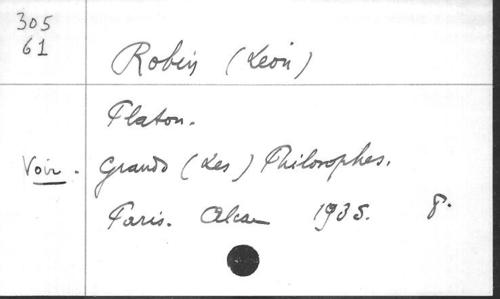 305
61
Robin (Léon)
Platon.
Voir. Grands (Les) Philosophes.
Paris. Alcan 1935. 8.